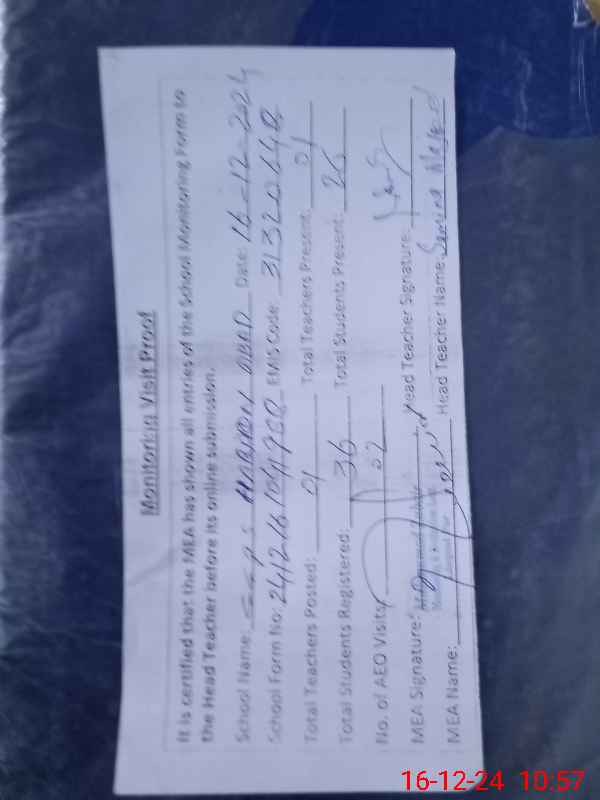 Monitoring Visit Proof
It is certified that the MEA has shown all entries of the School Monitoring Form to
the Head Teacher before its online submission.
School Name: HAROON ABAD Date: 16-12-2024
School Form No: EMIS Code:
Total Teachers Posted: 01 Total Teachers Present: 01
Total Students Registered: 36 Total Students Present: 26
No. of AEO Visits: 02
MEA Signature: Head Teacher Signature:
MEA Name: Head Teacher Name: Samina
16-12-24 10:57